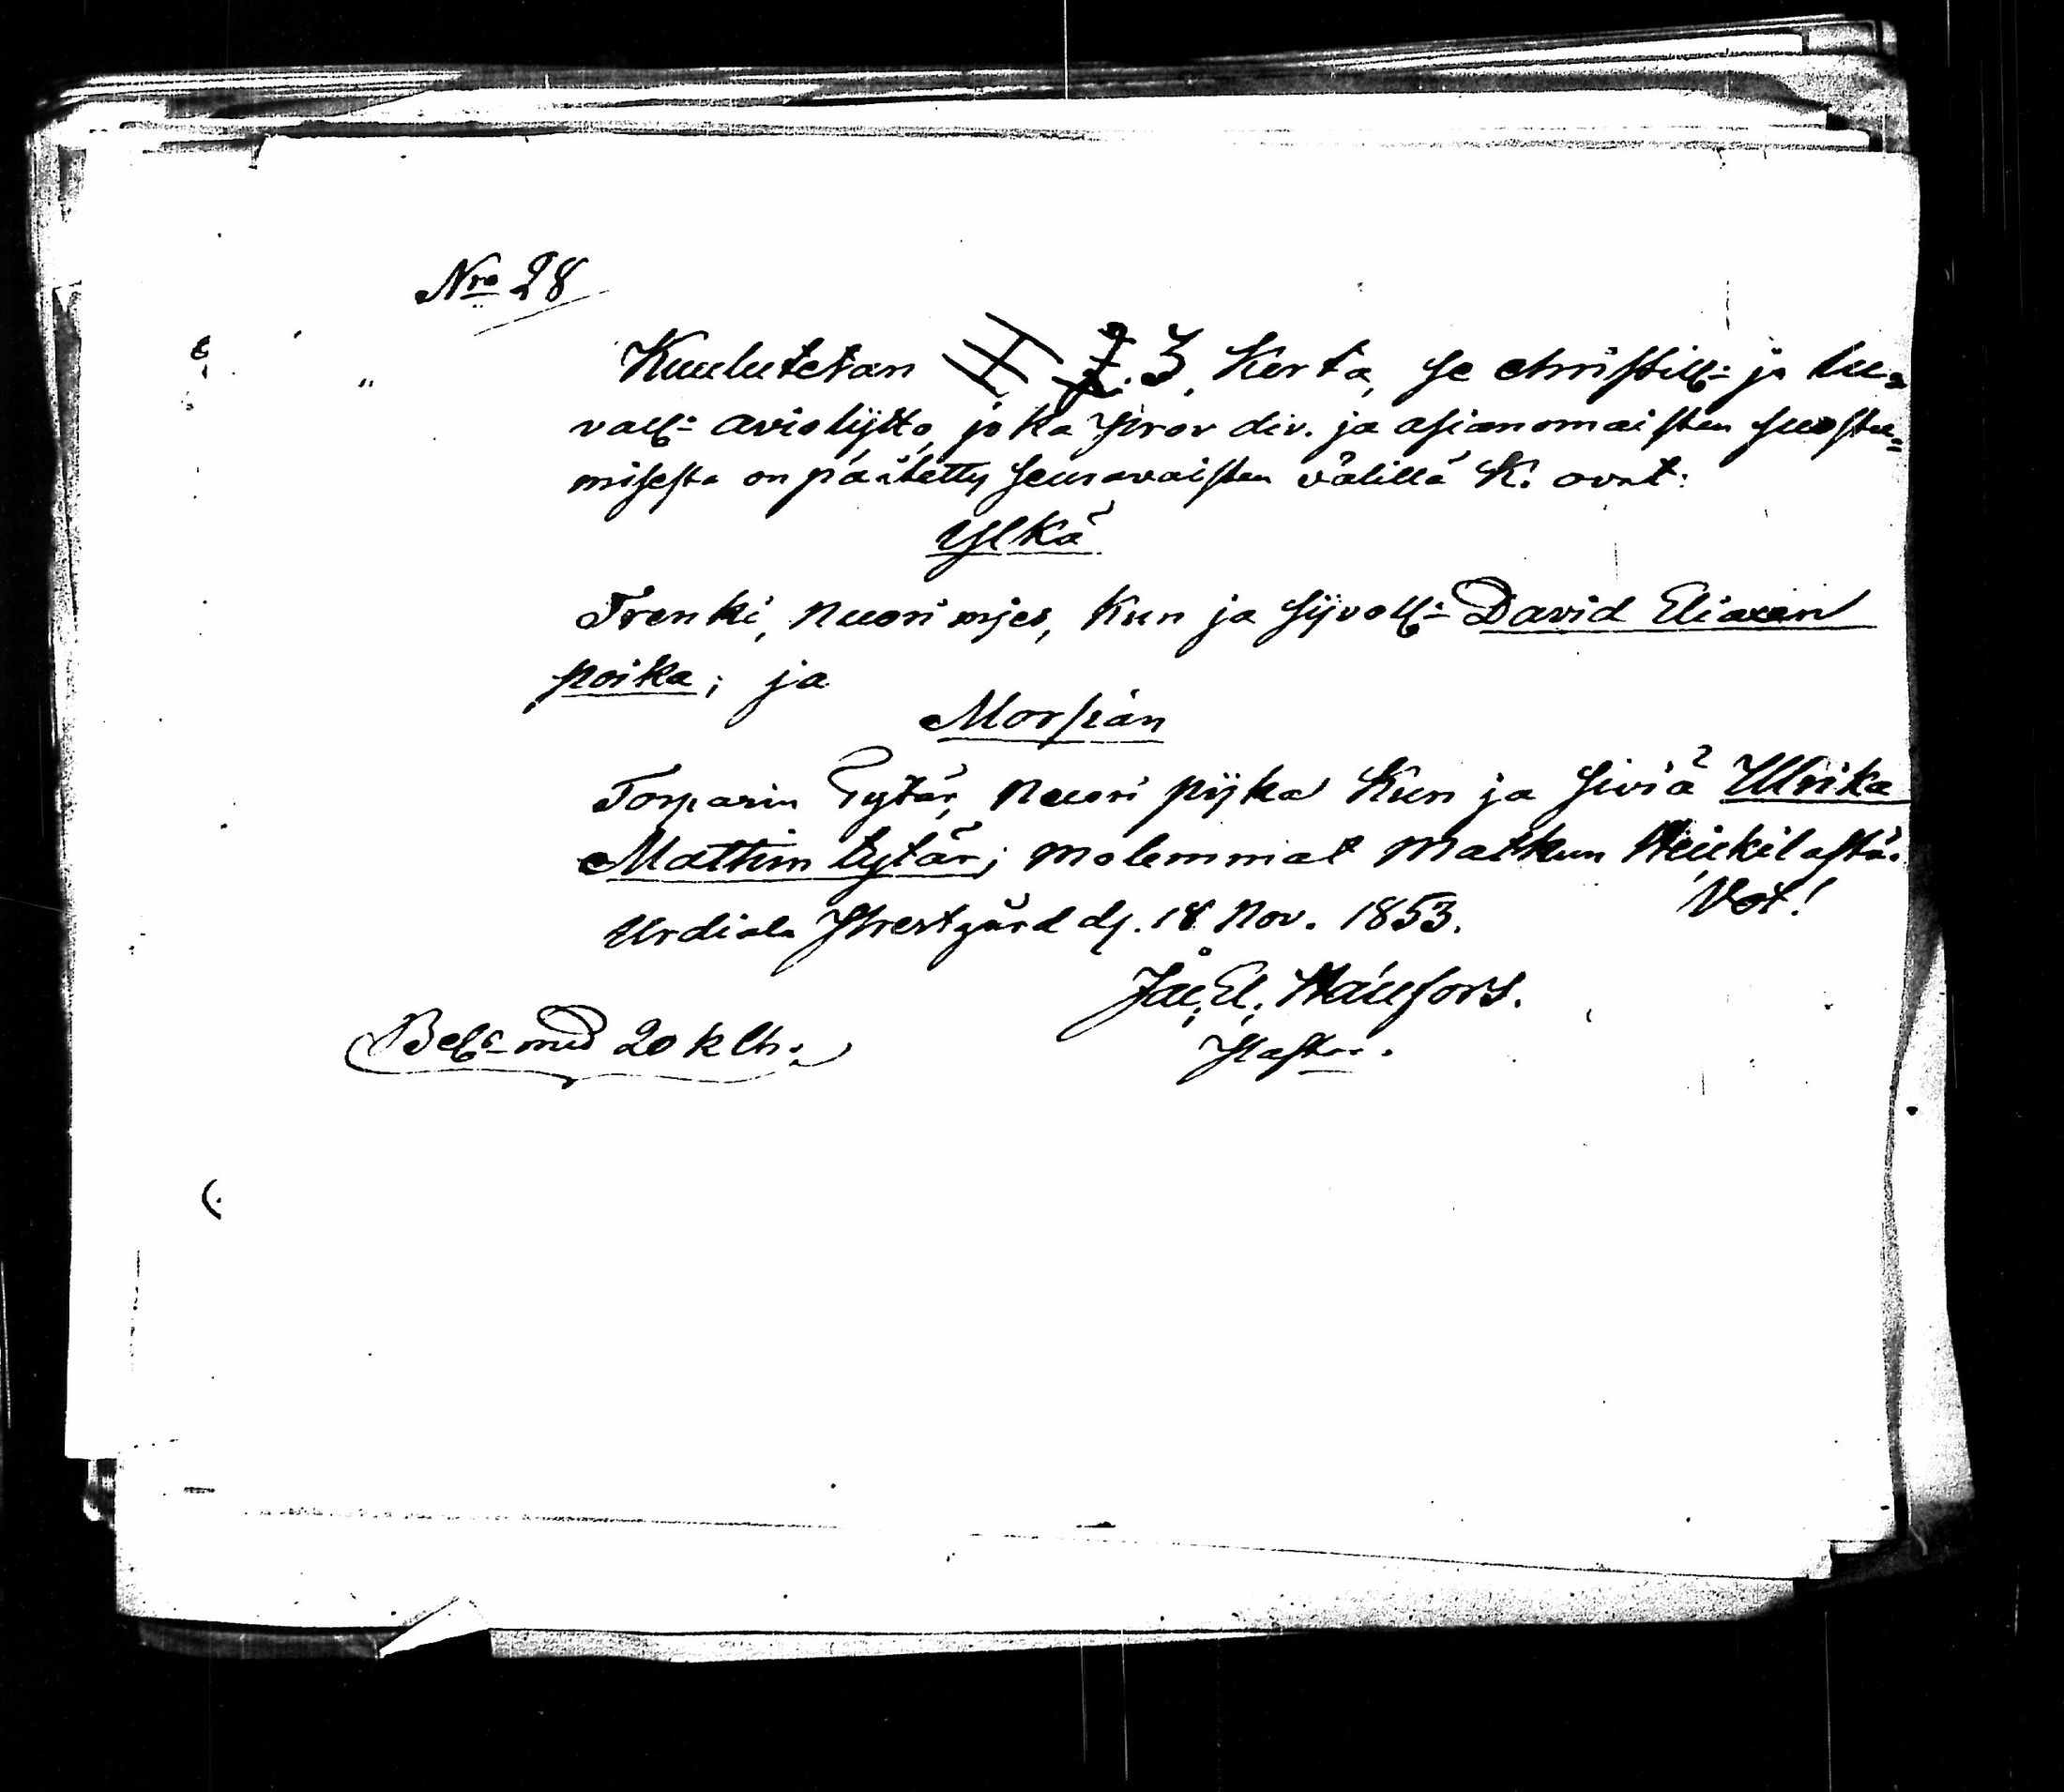 Nro 28
Kuulutetan 2. 3. Kerta, se christill: ja lu=
vall: aviokäsky, joka Prov div. ja asianomaisten suostu=
misesta on päätetty seuravaisten välillä K. ovat:
Ylkä
Trenki, nuori mies, Kun ja syvall: David Eliaxen
poika; ja
Morsian
Torparin Tytär, nuori pijka Kun ja siviä Ulrika
Mattin tytär; molemmat Matkun Heikilästä.
Vot!
Urdiala Prestgård d. 18 Nov. 1853.
Jac. El.
Pastor.
Bet. med 20 k